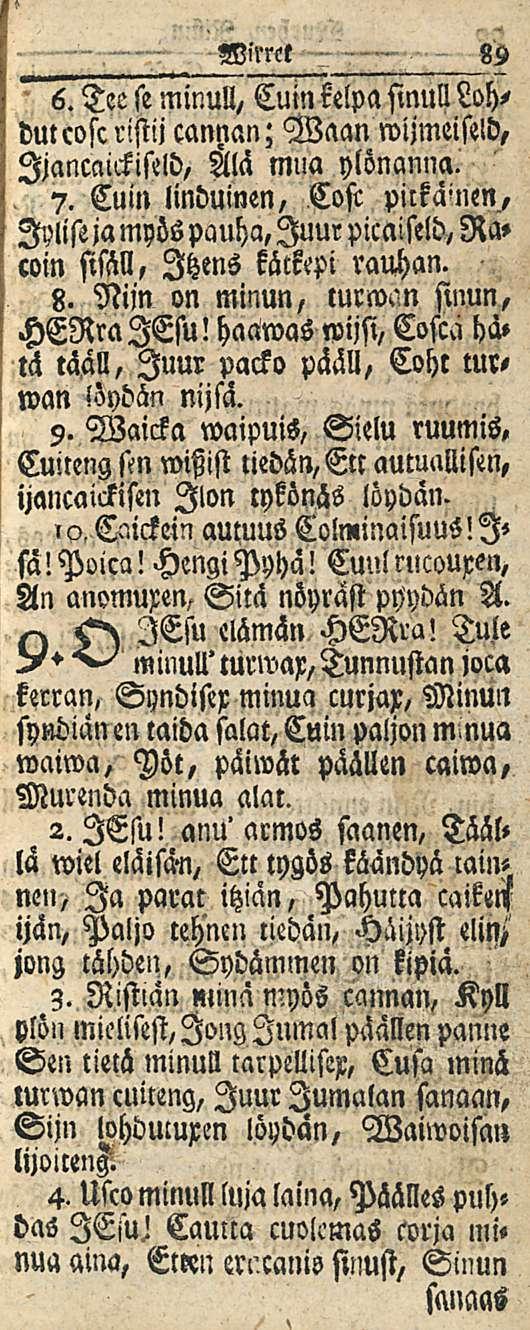 Wirret 89
6. Tee se minull, Cuin kelpa sinull Loh⸗
dut cosc ristij cannan; Waan wijmeiseld,
Ijancaickiseld, Älä mua ylönanna.
7. Cuin linduinen, Cosc pitkäinen,
Jylise ja myös pauha, Juur picaiseld, Ra⸗
coin sisäll, Itzens kätkepi rauhan.
8. Nijn on minun, turwan sinun,
HERra JEsu! haawas wijsi, Cosca hä⸗
tä tääll, Juur packo pääll, Coht tur⸗
wan löydän nijsä.
9. Waicka waipuis, Sielu ruumis,
Cuiteng sen wißist tiedän, Ett autuallisen,
ijancaickisen Ilon tykönäs löydän.
10. Caickein autuus Colminaisuus! I⸗
sä! Poica! Hengi Pyhä! Cuul rucouxen,
An anomuxen, Sitä nöyräst pyydän A.
9. O JEsu elämän HERra! Tule
minull' turwax, Tunnustan joca
kerran, Syndisex minua curjax, Minun
syndiän en taida salat, Cuin paljon minua
waiwa, Yöt, päiwät päällen caiwa,
Murenda minua alat.
2. JEsu! anu' armos saanen, Tääl⸗
lä wiel eläisän, Ett tygös käändyä tain⸗
nen, Ja parat itziän, Pahutta caiken
ijän, Paljo tehnen tiedän, Häijyst elin,
jong tähden, Sydämmen on kipiä.
3. Ristiän minä myös cannan, Kyll
ylön mielisest, Jong Jumal päällen panne
Sen tietä minull tarpellisex, Cusa minä
turwan cuiteng, Juur Jumalan sanaan,
Sijn lohdutuxen löydän, Waiwoisan
lijoiteng.
4. Usco minull luja laina, Päälles puh⸗
das JEsu! Cautta cuolemas corja mi⸗
nua aina, Etten eracanis sinust, Sinun
sanaas